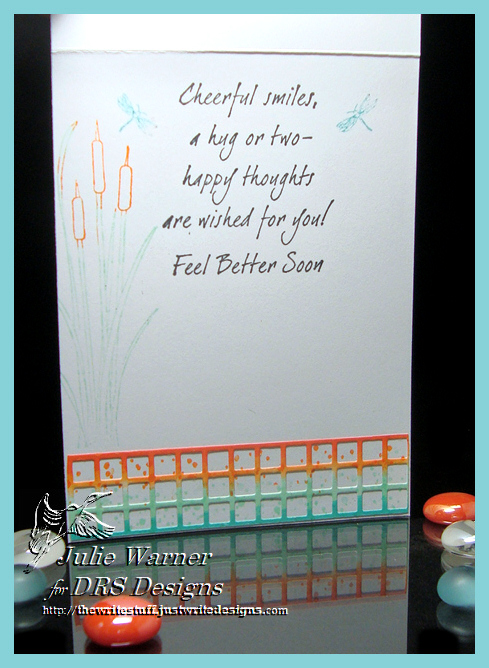 Cheerful smiles,
a hug or two-
happy thoughts
are wished for you!
Feel Better Soon
Julie Warner
for DRS Designs
http://thewritestuff.justwritedesigns.com